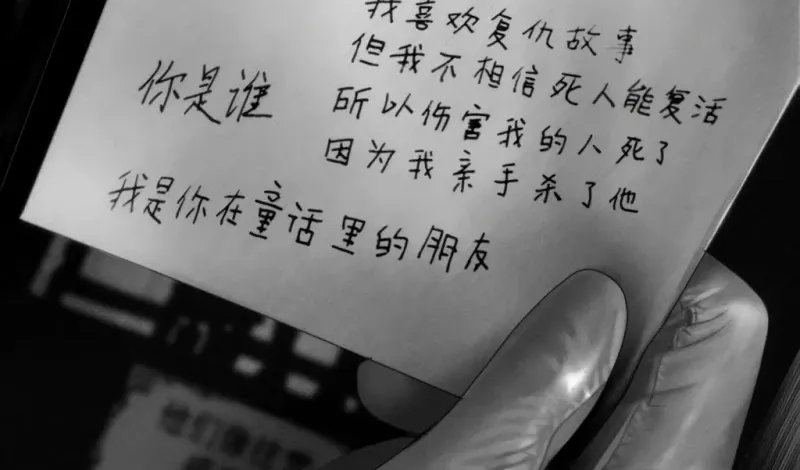 我喜欢复仇故事
但我不相信死人能复活
所以伤害我的人死了
因为我亲手杀了他
你是谁
我是你在童话里的朋友